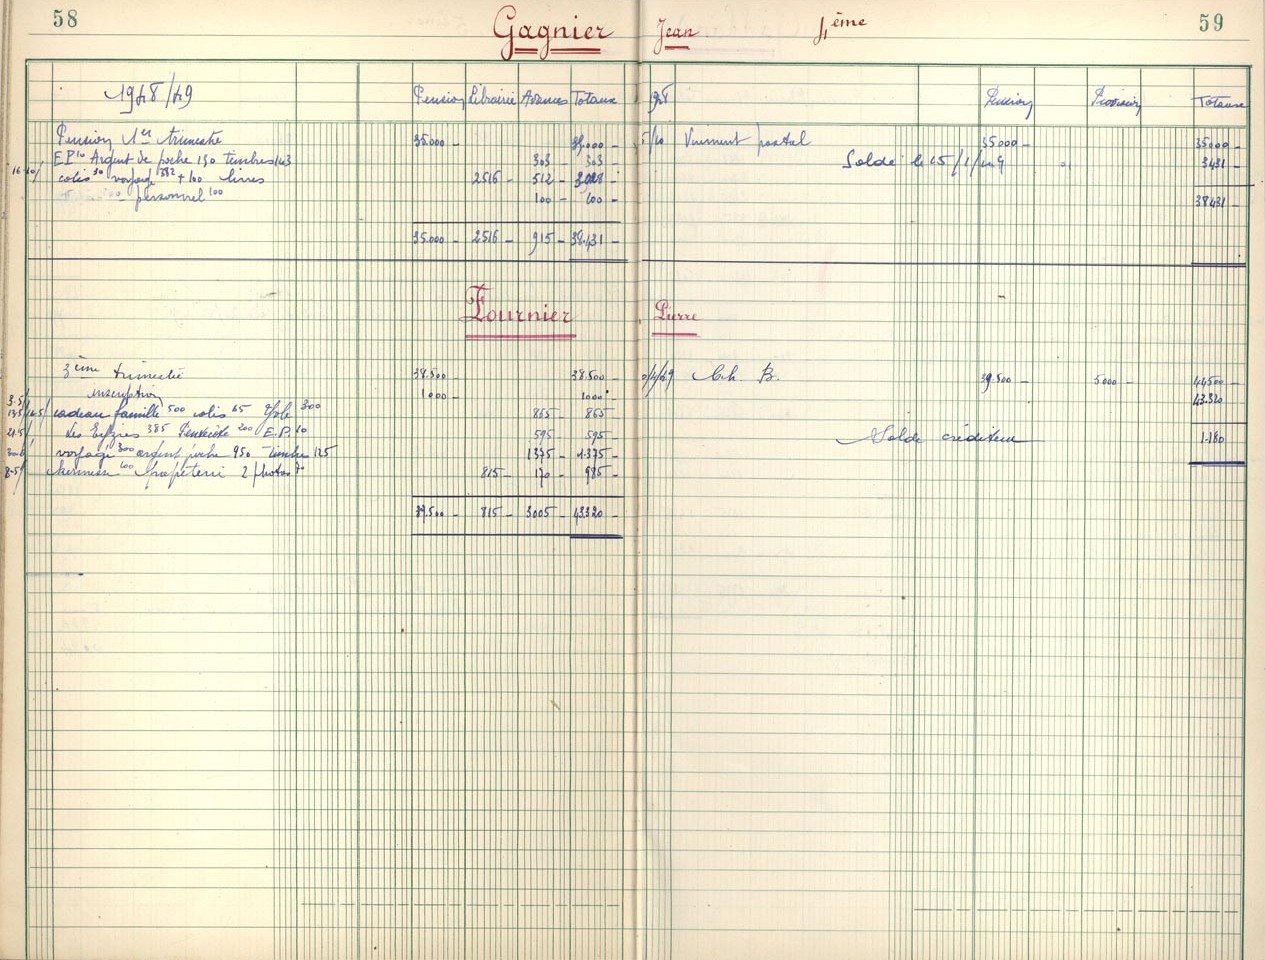 58 Gagnier Jean 4ème 59
1948/49 Pension Librairie Avances Totaux 48 Pension Provision Totaux
Pension 1er trimestre 35.000 - 35.000 - 5/10 Virement postal 35000 - 35000 -
E.P. 10 Argent de poche 150 timbres 143 303 - 303 - Solde le 25/1/49 3431 -
16-10/ colis 30 voyage 382 + 100 livres 2516 - 512 - 3028 - 38431 -
personnel 100 100 - 100 -
35.000 - 2516 - 915 - 38.431 -
Fournier Pierre
3ème trimestre 38.500 - 38.500 - /4/49 Ch. B. 39.500 - 5000 - 44500 -
inscription 1000 - 1000 - 43.320 -
cadeau famille 500 colis 65 300 865 - 865 -
385 Pentecôte 200 E.P. 10 595 - 595 - Solde créditeur 1.180 -
voyage 300 argent poche 950 timbre 125 1375 - 1.375 -
kermesse 100 Papeterie 2 photos 70 815 - 170 - 985 -
39.500 - 815 - 3005 - 43320 -